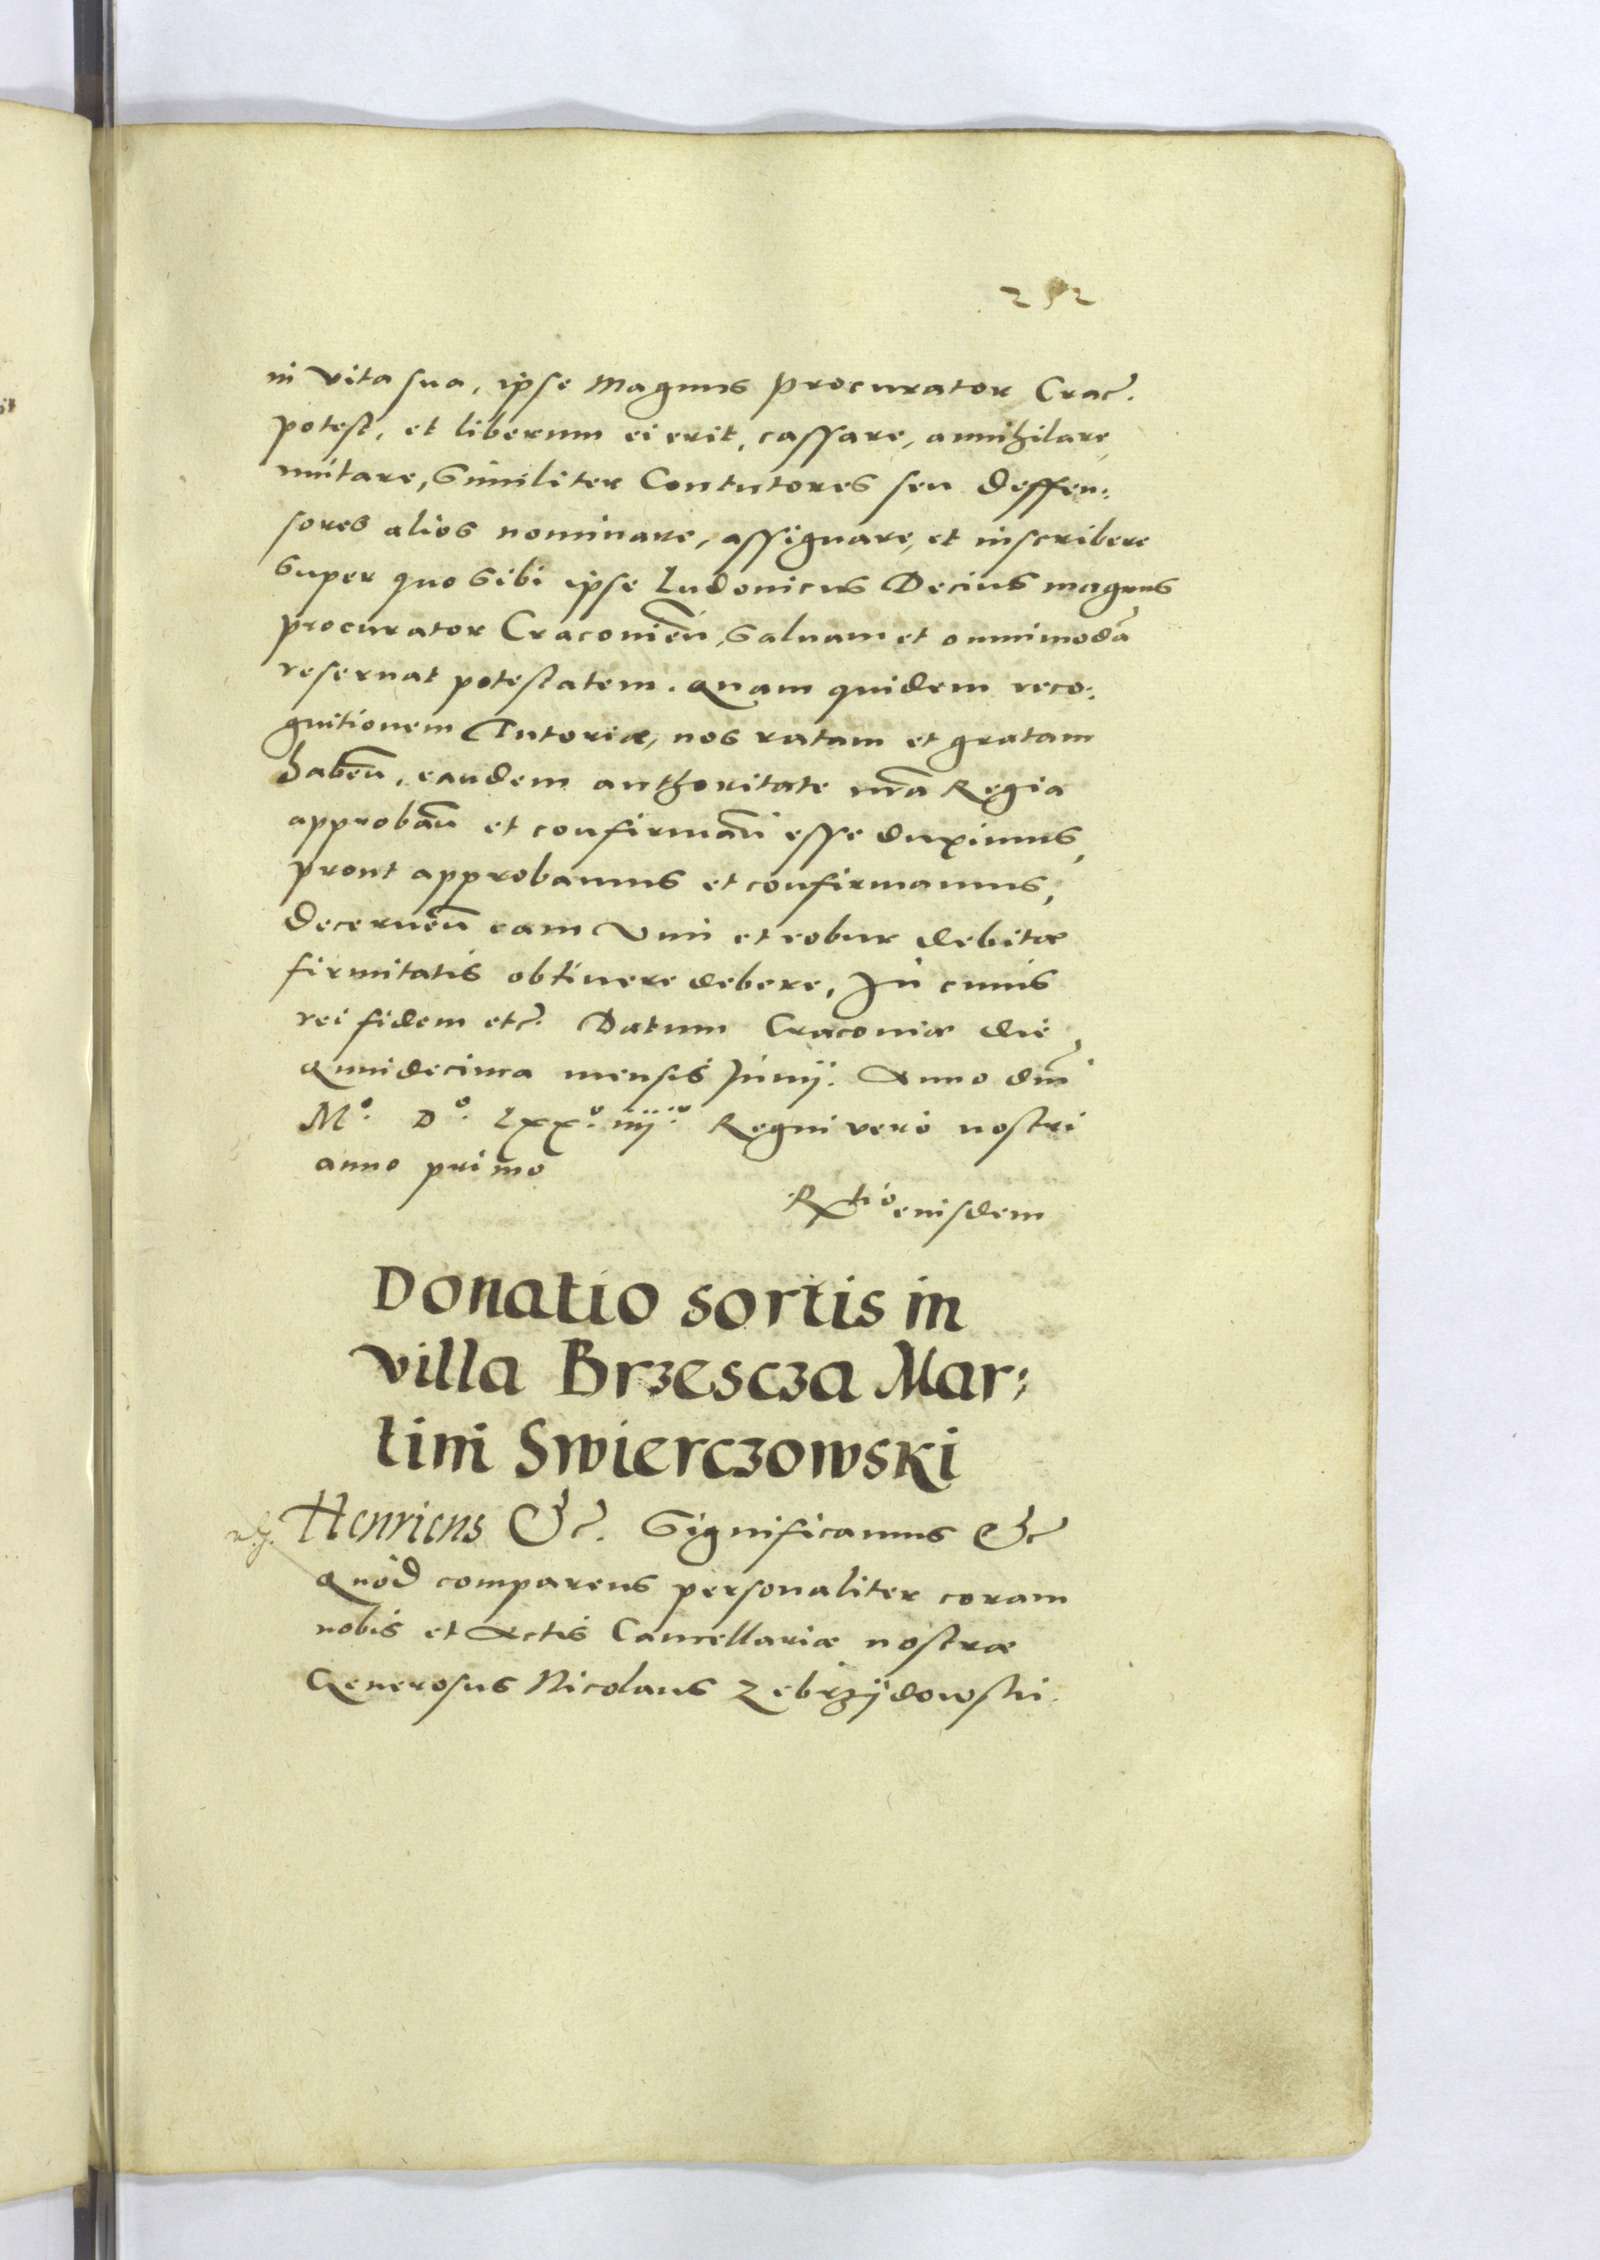 252
in vita sua, ipse Magnus procurator Crac.
potest, et liberum ei erit, cassare, annihilare,
mutare, Similiter Contutores seu deffen:
sores alios nominare, assignare, et inscribere
Super quo Sibi ipse Ludovicus Decius magnus
procurator Cracovien̄, Salvam et omnimodā
reservat potestatem. Quam quidem reco:
gnitionem Tutoriæ, nos ratam et gratam
haben̄, eandem authoritate nr̄a Regia
approban̄ et confirman̄ esse duximus,
prout approbamus et confirmamus,
decernen̄ eam vim et robur debitæ
firmitatis obtinere debere, In cuius
rei fidem etc. Datum Cracoviæ die
Quindecima mensis Junij. Anno dn̄i
Mº. Dº. Lxxº. iiijº. Regni vero nostri
anno primo
Rtio eiusdem
Donatio sortis in
villa Brzescza Mar:
tini Swierczowski
Henricus &c. Significamus &c
Quòd comparens personaliter coram
nobis et Actis Cancellariæ nostræ
Generosus Nicolaus Zebrzÿdowski